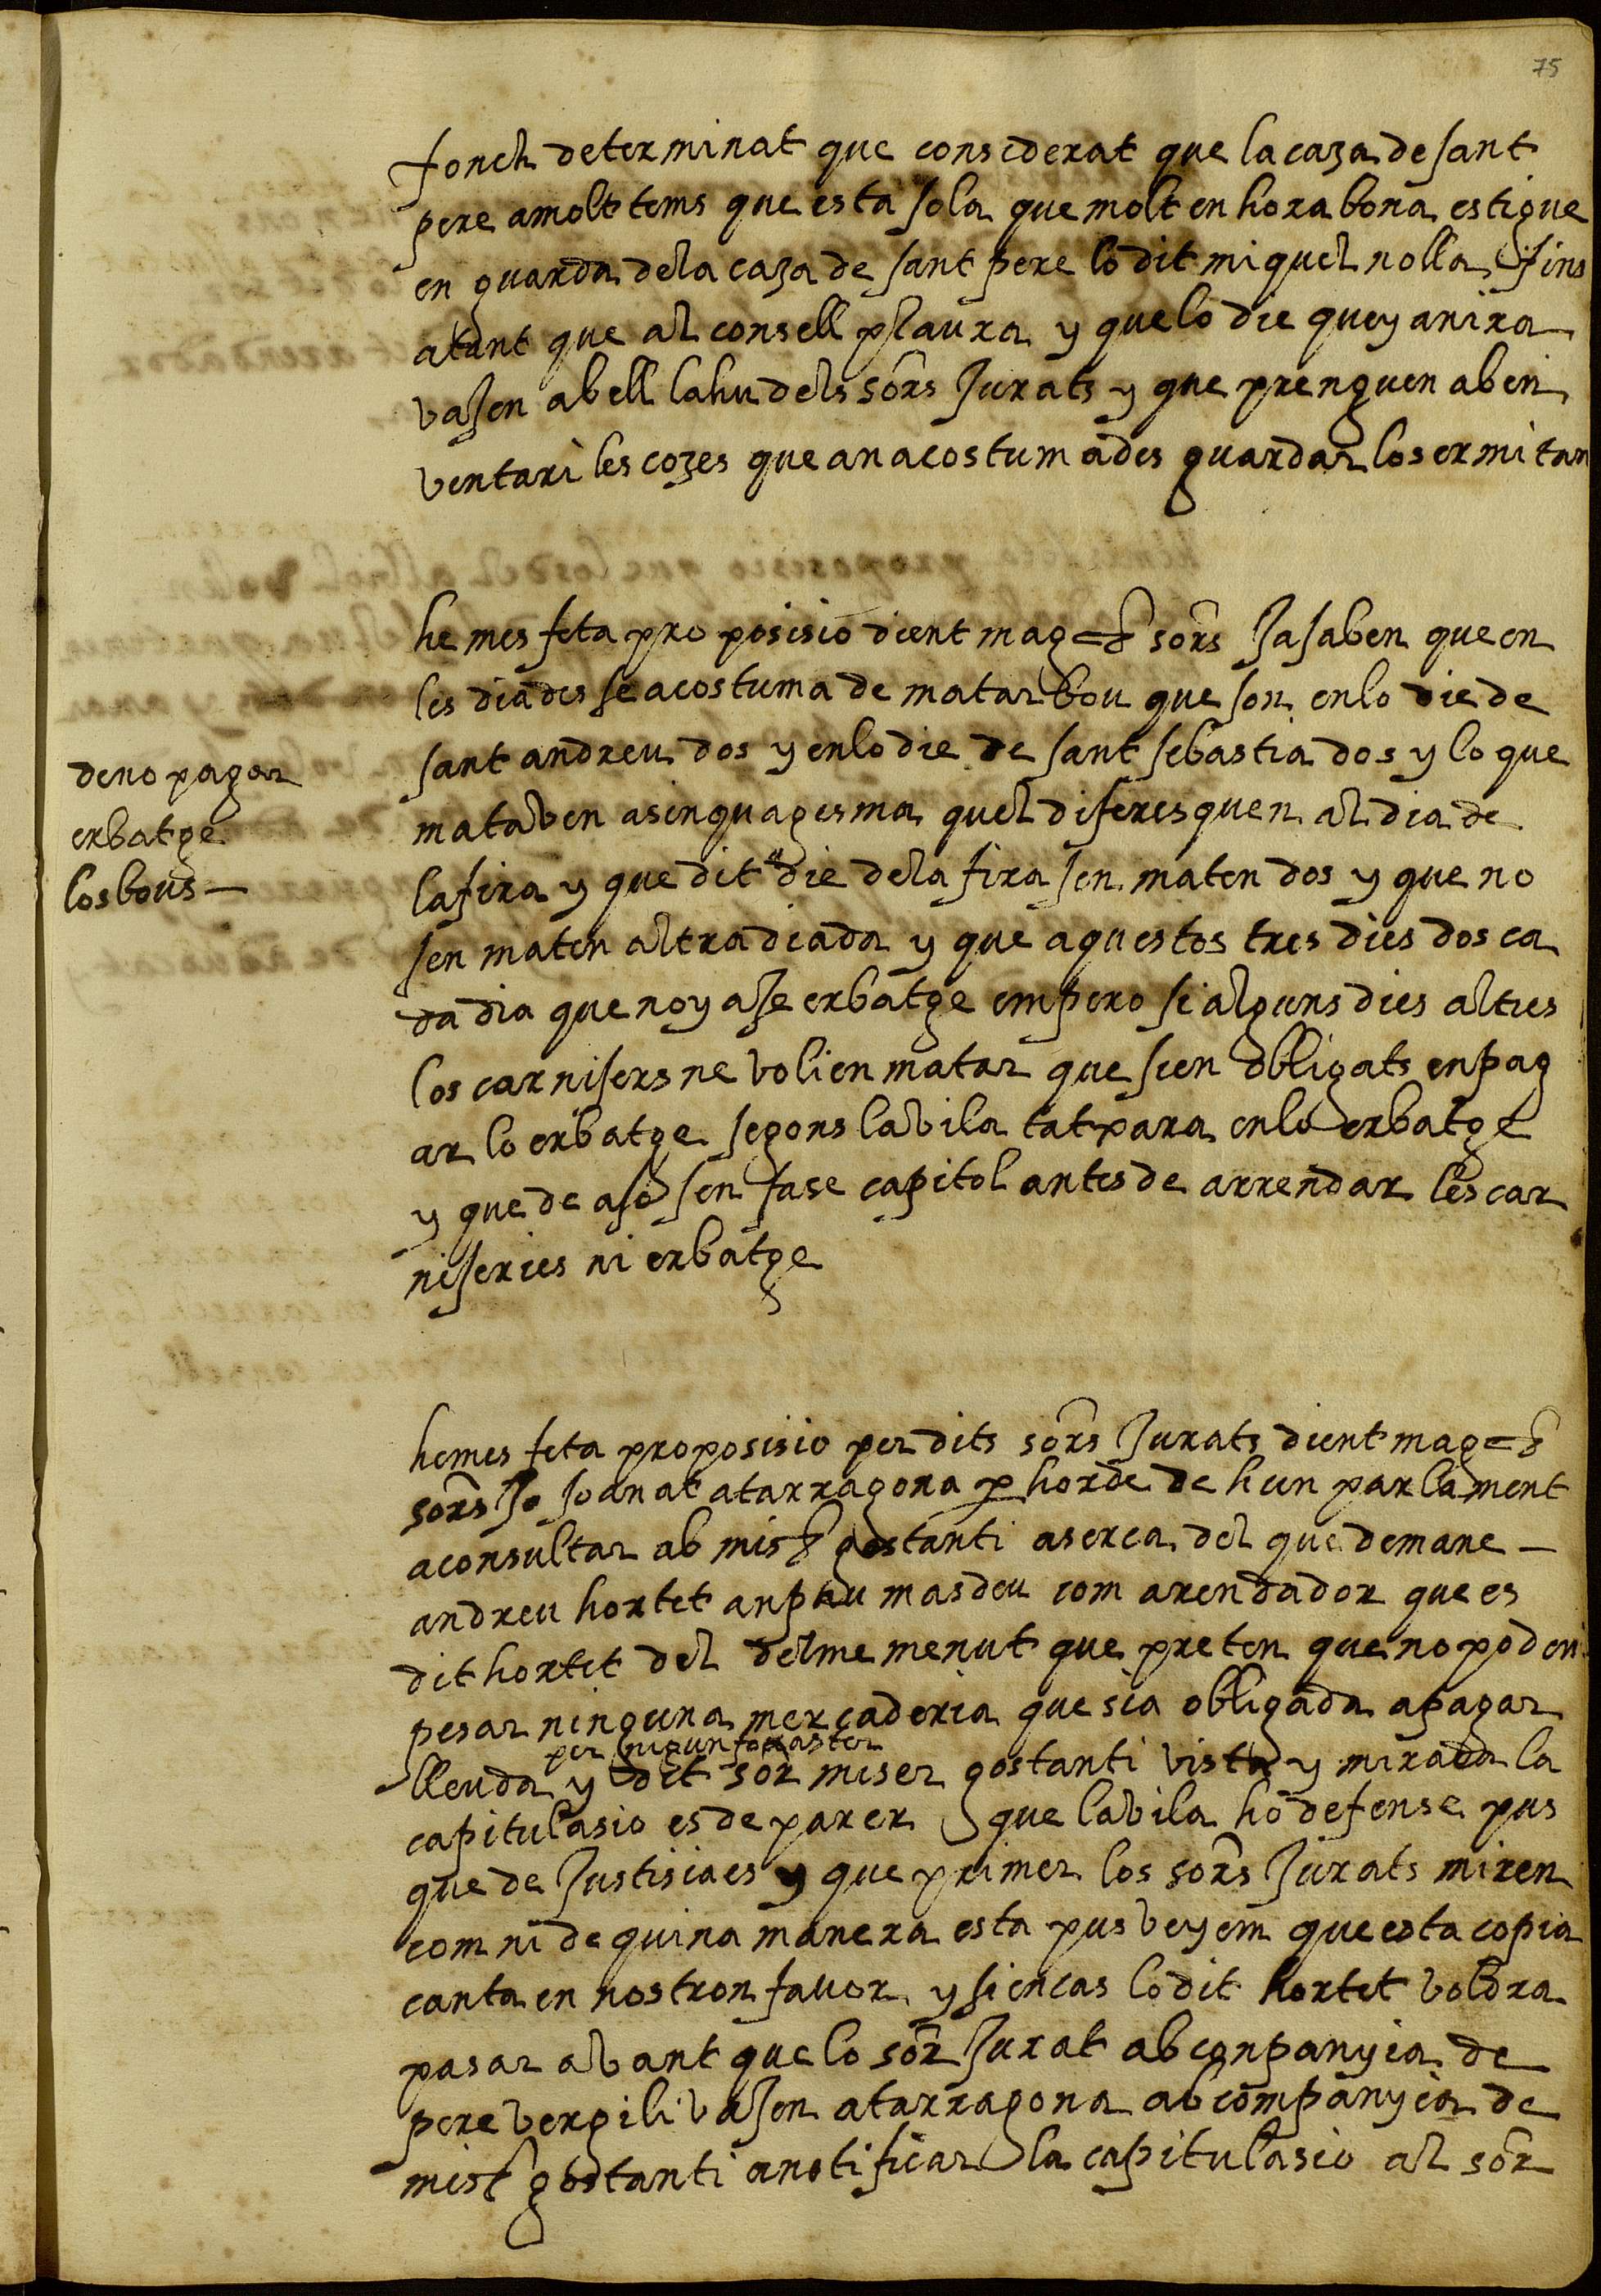 75
fonch determinat que considerat que la caza de sant
pere a molt tems que esta sola que molt en hora bona estigue
en guarda de la caza de sant pere lo dit miquel nolla fins
atant que al consell plaura y que lo die que y anira
vasen ab ell la hu dels sors Jurats y que prenguen ab in
ventari les cozes que an acostumades guardar los ermitan
he mes feta proposisio dient mag=s sors Ja saben que en
les diades se acostuma de matar bou que son en lo die de
sant andreu dos y en lo die de sant sebastia dos y lo que
mataven a sinquagesma quel diferesquen al dia de
la fira y que dit die de la fira sen maten dos y que no
sen maten altra diada y que aquestos tres dies dos ca
da dia que no y ase erbatge empero si alguns dies altres
los carnisers ne volien matar que sien obligats en pag
ar lo erbatge segons la vila tatxara en lo erbatge
y que de aso sen fase capitol antes de arrendar les car
niseries ni erbatge
de no pagar
erbatge
los bous —
he mes feta proposisio per dits sors Jurats dient mag=s
sors Jo so anat a tarragona p horde de hun parlament
a consultar ab mis^r gostanti aserca del que demane —
andreu hortet an pau masdeu com arendador que es
dit hortet del delme menut que preten que no poden
pesar ninguna mercaderia que sia obligada a pagar
per nigun foraster
lleuda y dit sor miser gostanti vista y mirada la
capitulasio es de parer que la vila ho defense pus
que de Justisia es y que primer los sors Jurats miren
com ni de quina manera esta pus veyem que esta copia
canta en nostron favor y si en cas lo dit hortet voldra
pasar avant que lo sor Jurat ab conpanyia de
pere vergili vasen a tarragona ab companyia de
mis^r gostanti a notificar la capitulasio al sor